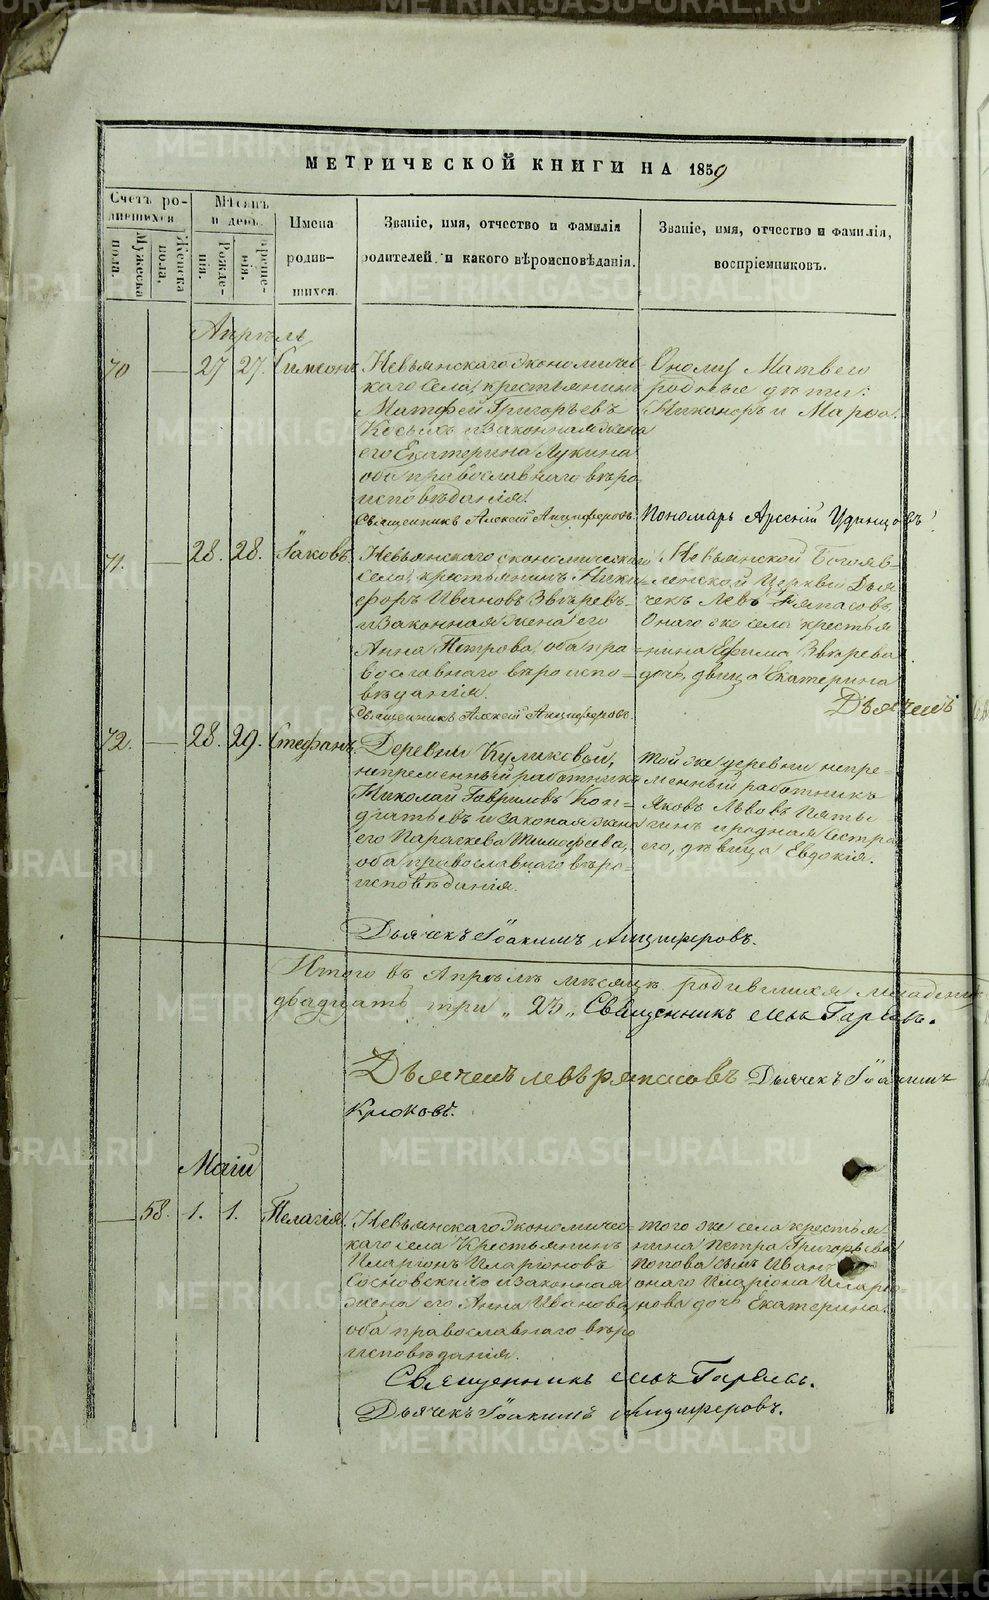 МЕТРИЧЕСКОЙ КНИГИ НА 1859
Счетъ ро-
дившихся
Мужеска
пола.
Женска
пола.
Мѣсяцъ
и день.
Рожде-
нія.
Креще-
нія.
Имена
родив-
шихся.
Званіе, имя, отчество и фамилія
родителей, и какого вѣроисповѣданія.
Званіе, имя, отчество и фамилія,
воспріемниковъ.
Апрѣль
70 — 27 27. Симеонъ
Невьянскаго Экономичес-
каго села, крестьянинъ
Матфей Григорьевъ
Косыхъ и законная жена
его Екатерина Лукина
оба православнаго вѣро
исповѣданія.
Священникъ Алексій Анциферовъ.
Оному Матвею
родные дѣти:
Никаноръ и Марѳа.
Пономарь Арсеній Удинцовъ
71. — 28. 28. Іаковъ.
Невьянскаго экономическаго
села, крестьянинъ Ники
форъ Ивановъ Звѣревъ
и законная жена его
Анна Петрова, оба пра
вославнаго вѣроиспо-
вѣданія.
Священникъ Алексій Анциферовъ.
Невьянской Богояв-
ленской Церкви Дья
чекъ Левъ Ряпасовъ
Онаго же села крестья
нина Ефима Звѣрева
дочь, двица Екатерина
Дьячекъ
72. — 28. 29. Стефанъ.
Деревни Куликовой,
непременный работникъ
Николай Гавриловъ Кон-
дратьевъ и законая жена
его Параскева Тимофеева,
оба православнаго вѣро-
исповѣданія.
Дьячекъ Іоакимъ Анциферовъ.
той же деревни непре-
менный работникъ
Яковъ Львовъ Пяты
гинъ и родная сестра
его, дѣвица Евдокія.
Итого въ Апрѣлѣ мѣсяцѣ родившихся младенцевъ
двадцать три „ 23 „ Священникъ
Дьячекъ Левъ Ряпасовъ Дьячекъ Іоакимъ
Крюковъ.
Маій
— 58. 1. 1. Пелагія.
Невьянскаго Экономичес-
каго села Крестьянинъ
Иларіонъ Иларіоновъ
Сосновскихъ и законная
жена его Анна Иванова
оба православнаго вѣро
исповѣданія.
того же села крестья
нина Петра Григорьева
Попова сынъ Иванъ
онаго Иларіона Илларіо-
нова дочь Екатерина.
Священникъ
Дьячекъ Іоакимъ Анциферовъ.
METRIKI.GASO-URAL.RU